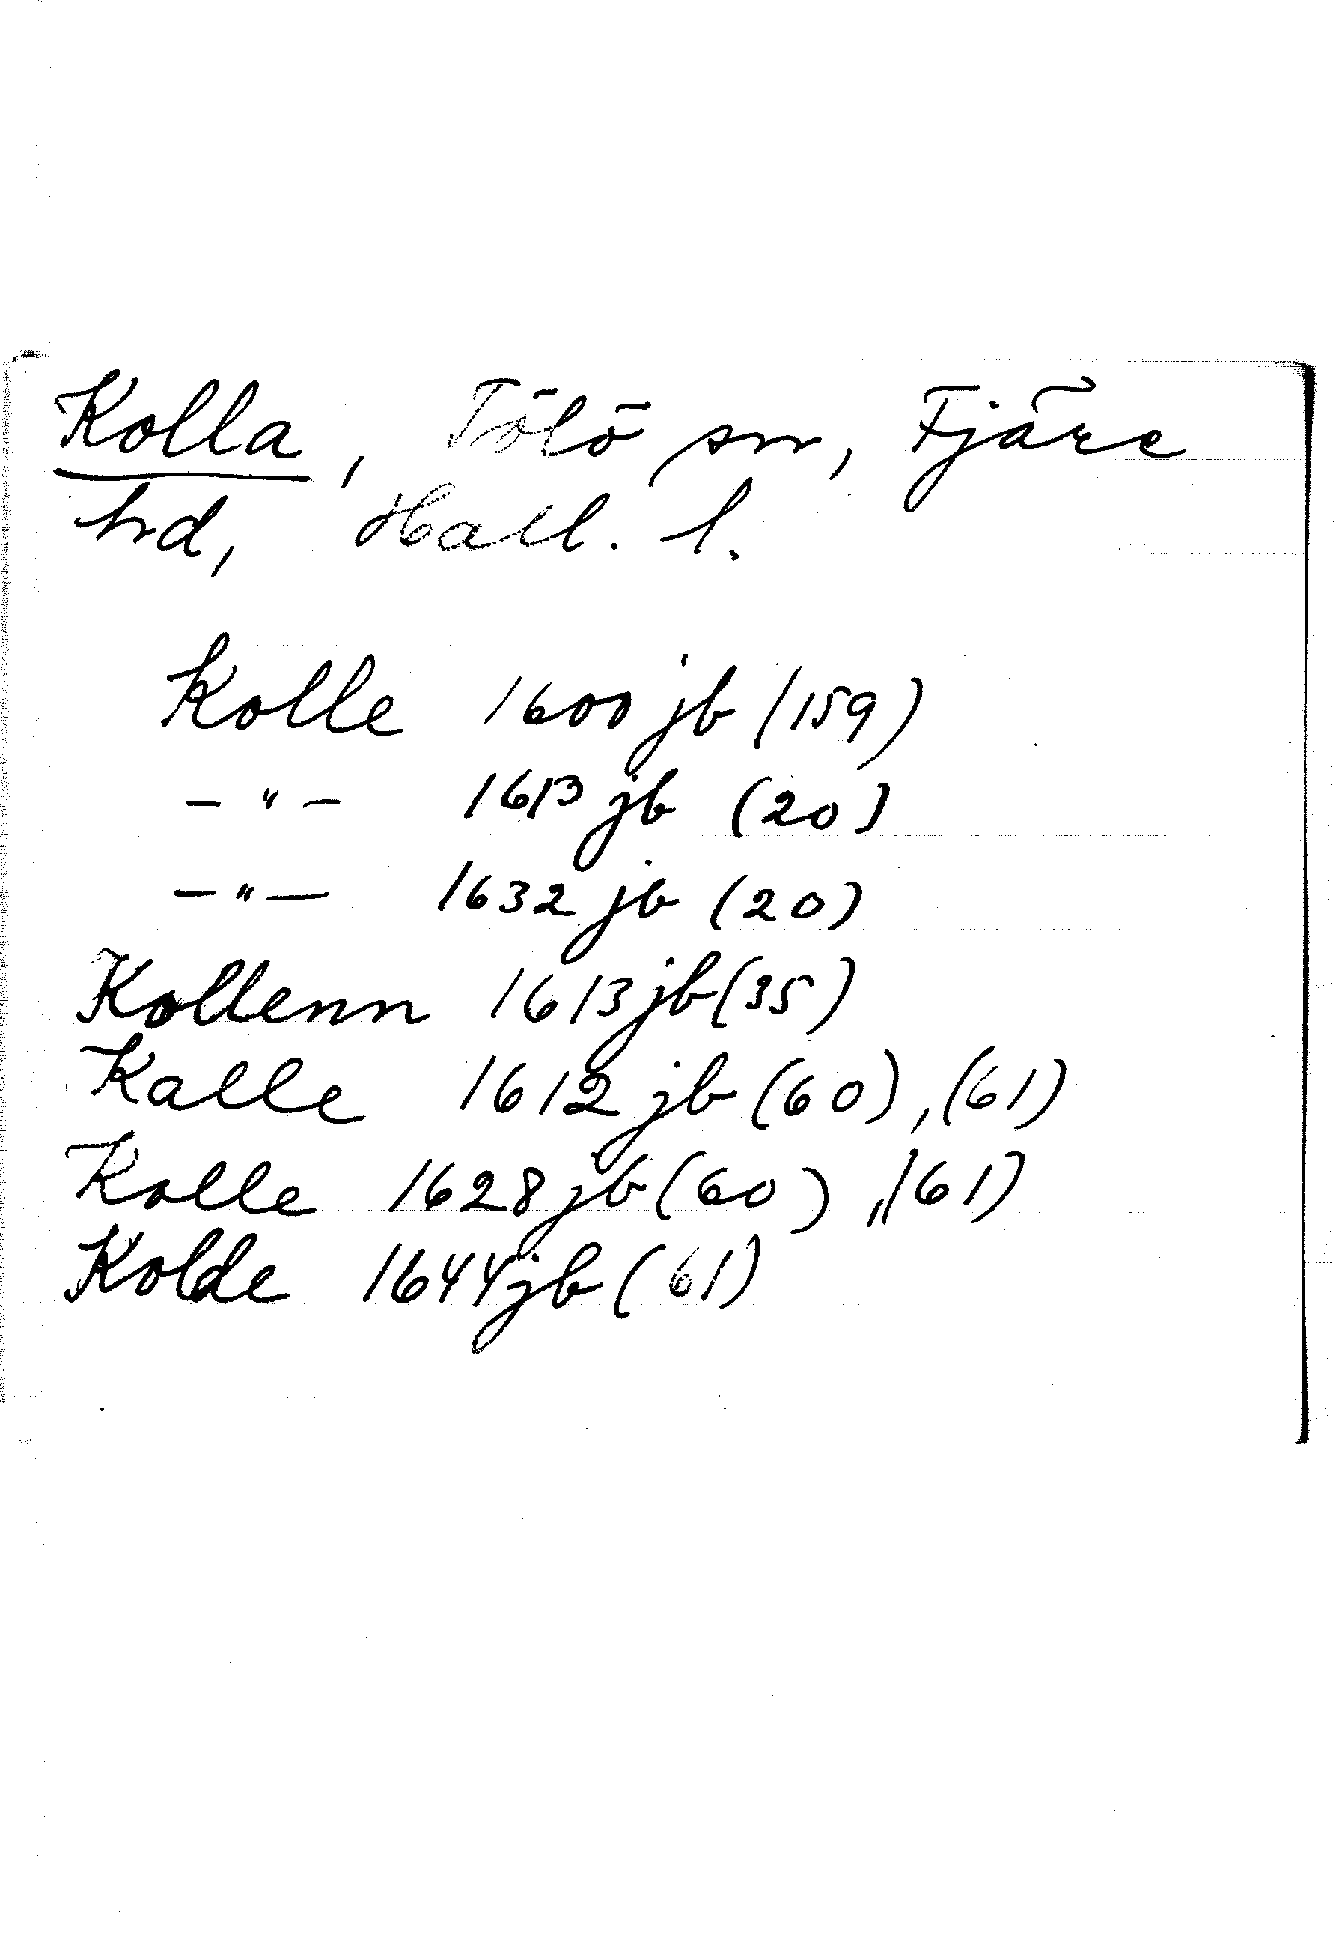 Kolla, Tölö sn, Fjäre
hd, Hall. l.
Kolle 1600 jb (159)
— " — 1613 jb (20)
— " — 1632 jb (20)
Kollenn 1613 jb (35)
Kalle 1612 jb (60), (61)
Kolle 1628 jb (60), (61)
Kolde 1644 jb (61)